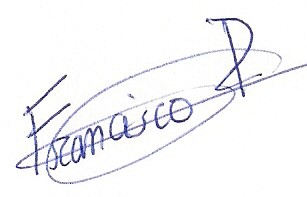 Francisco P